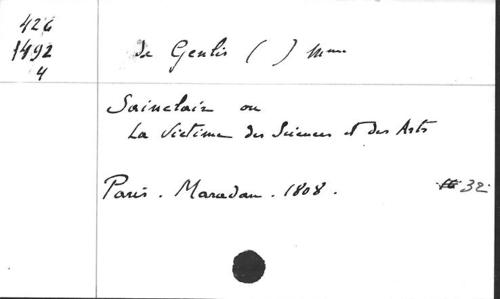 426
1492
4
de Genlis ( ) Mme
Sainclair ou
La Victime des Sciences et des Arts
Paris. Maradan. 1808.
32